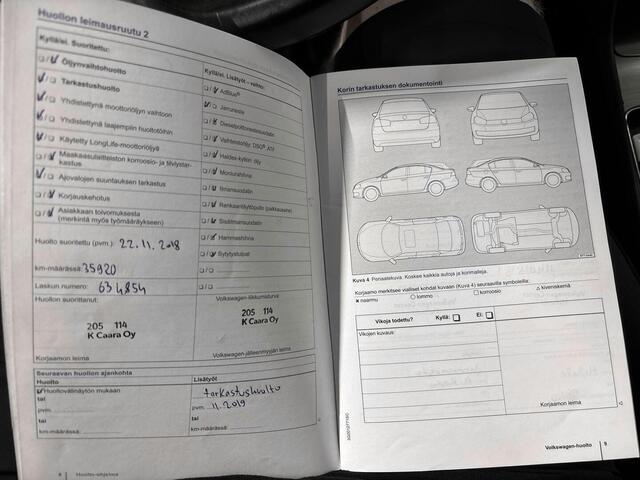 Huollon leimausruutu 2
Kyllä/ei. Suoritettu:
Öljynvaihtohuolto
Tarkastushuolto
Yhdistettynä moottoriöljyn vaihtoon
Yhdistettynä laajempiin huoltotöihin
Käytetty LongLife-moottoriöljyä
Maakaasulaitteiston korroosio- ja tiiviystar-
kastus
Ajovalojen suuntauksen tarkastus
Korjauskehotus
Asiakkaan toivomuksesta
(merkintä myös työmääräykseen)
Huolto suoritettu (pvm.) 22.11.2018
km-määrässä: 35920
Laskun numero: 634854
Huollon suorittanut:
205 114
K Caara Oy
Korjaamon leima
Kyllä/ei. Lisätyöt – vaihto:
AdBlue®
Jarruneste
Dieselpolttonesteensuodatin
Vaihteistoöljy: DSG, ATF
Haldex-kytkin öljy
Moniurahihna
Ilmansuodatin
Renkaantäytepullo (paikkausaine)
Sisäilmansuodatin
Hammashihna
Sytytystulpat
Volkswagen-liikkumisturva!
205 114
K Caara Oy
Volkswagen-jälleenmyyjän leima
Seuraavan huollon ajankohta
Huolto
Lisätyöt
Huoltovälinäytön mukaan
tai
pvm.
tai
km-määrässä:
tarkastushuolto
pvm. 11.2019
tai
km-määrässä:
8 Huolto-ohjelma
Korin tarkastuksen dokumentointi
Kuva 4 Periaatekuva. Koskee kaikkia autoja ja korimalleja.
Korjaamo merkitsee vialliset kohdat kuvaan (Kuva 4) seuraavilla symboleilla:
naarmu lommo korroosio kiveniskemä
Vikoja todettu? Kyllä: Ei:
Vikojen kuvaus:
Korjaamon leima
Volkswagen-huolto 9